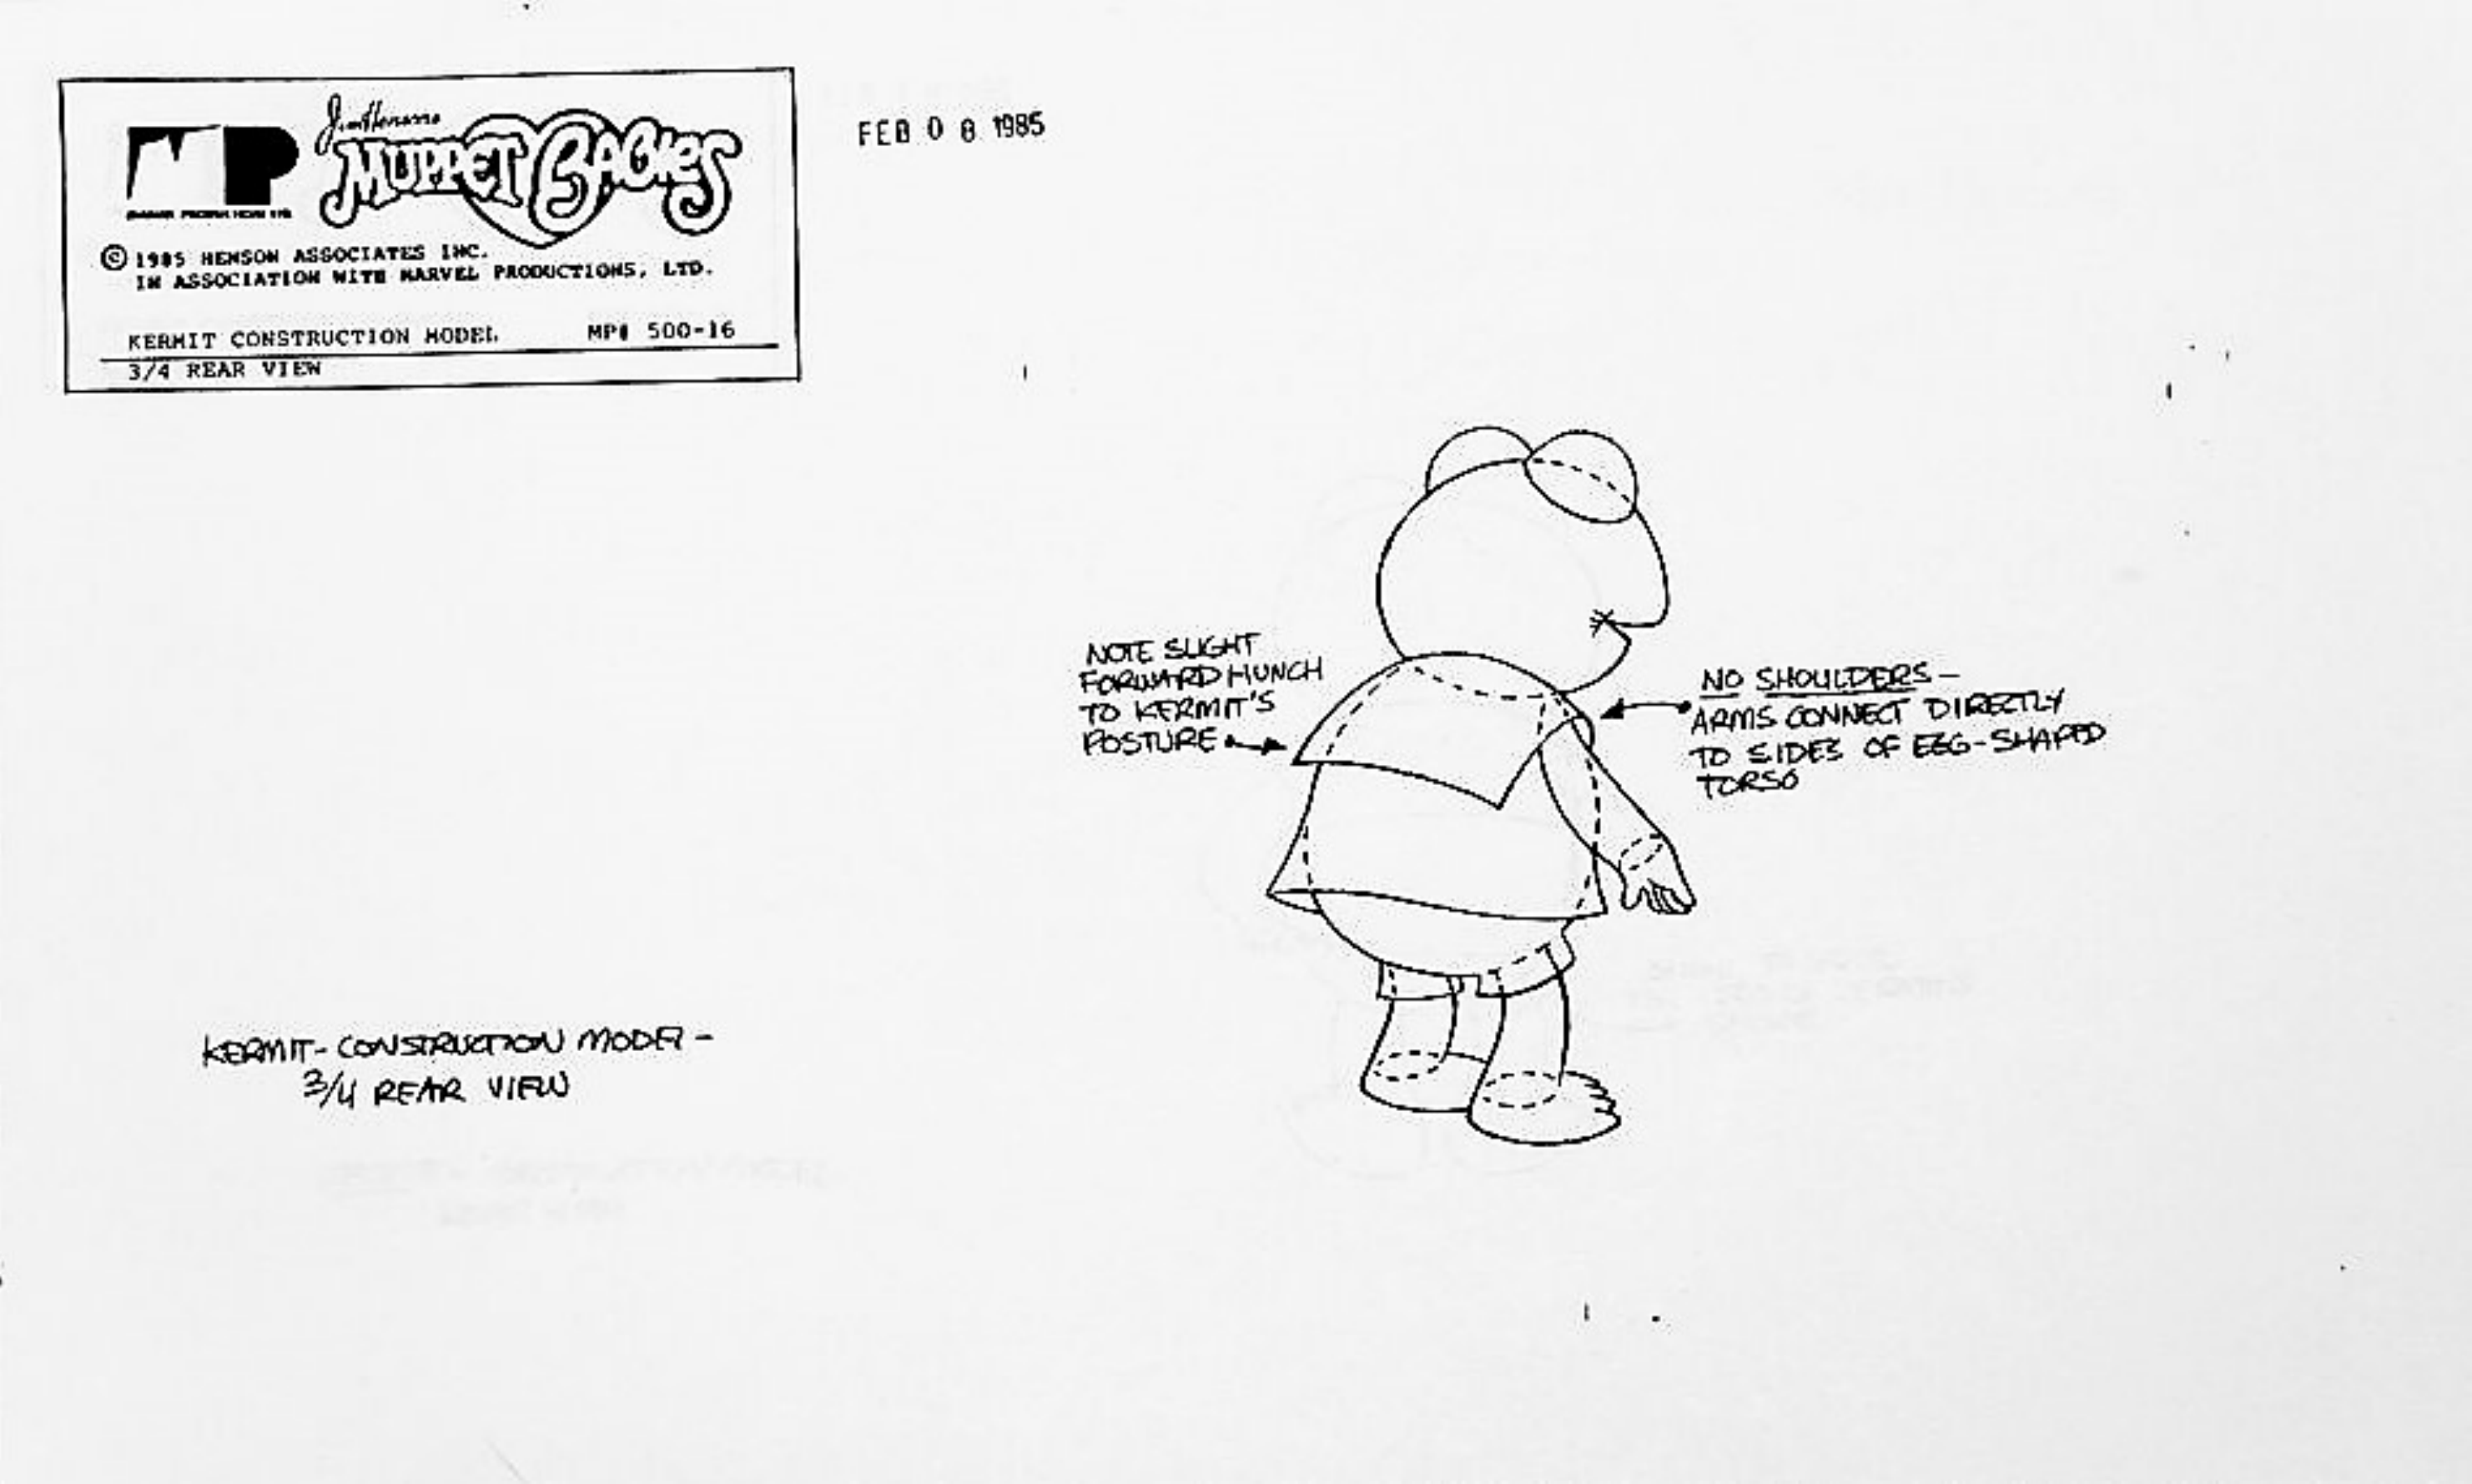 Jim Henson's
MUPPET BABIES
MP
© 1985 HENSON ASSOCIATES INC.
IN ASSOCIATION WITH MARVEL PRODUCTIONS, LTD.
KERMIT CONSTRUCTION MODEL MP# 500-16
3/4 REAR VIEW
FEB 08 1985
NOTE SLIGHT
FORWARD HUNCH
TO KERMIT'S
POSTURE
NO SHOULDERS —
ARMS CONNECT DIRECTLY
TO SIDES OF EGG-SHAPED
TORSO
KERMIT- CONSTRUCTION MODEL -
3/4 REAR VIEW